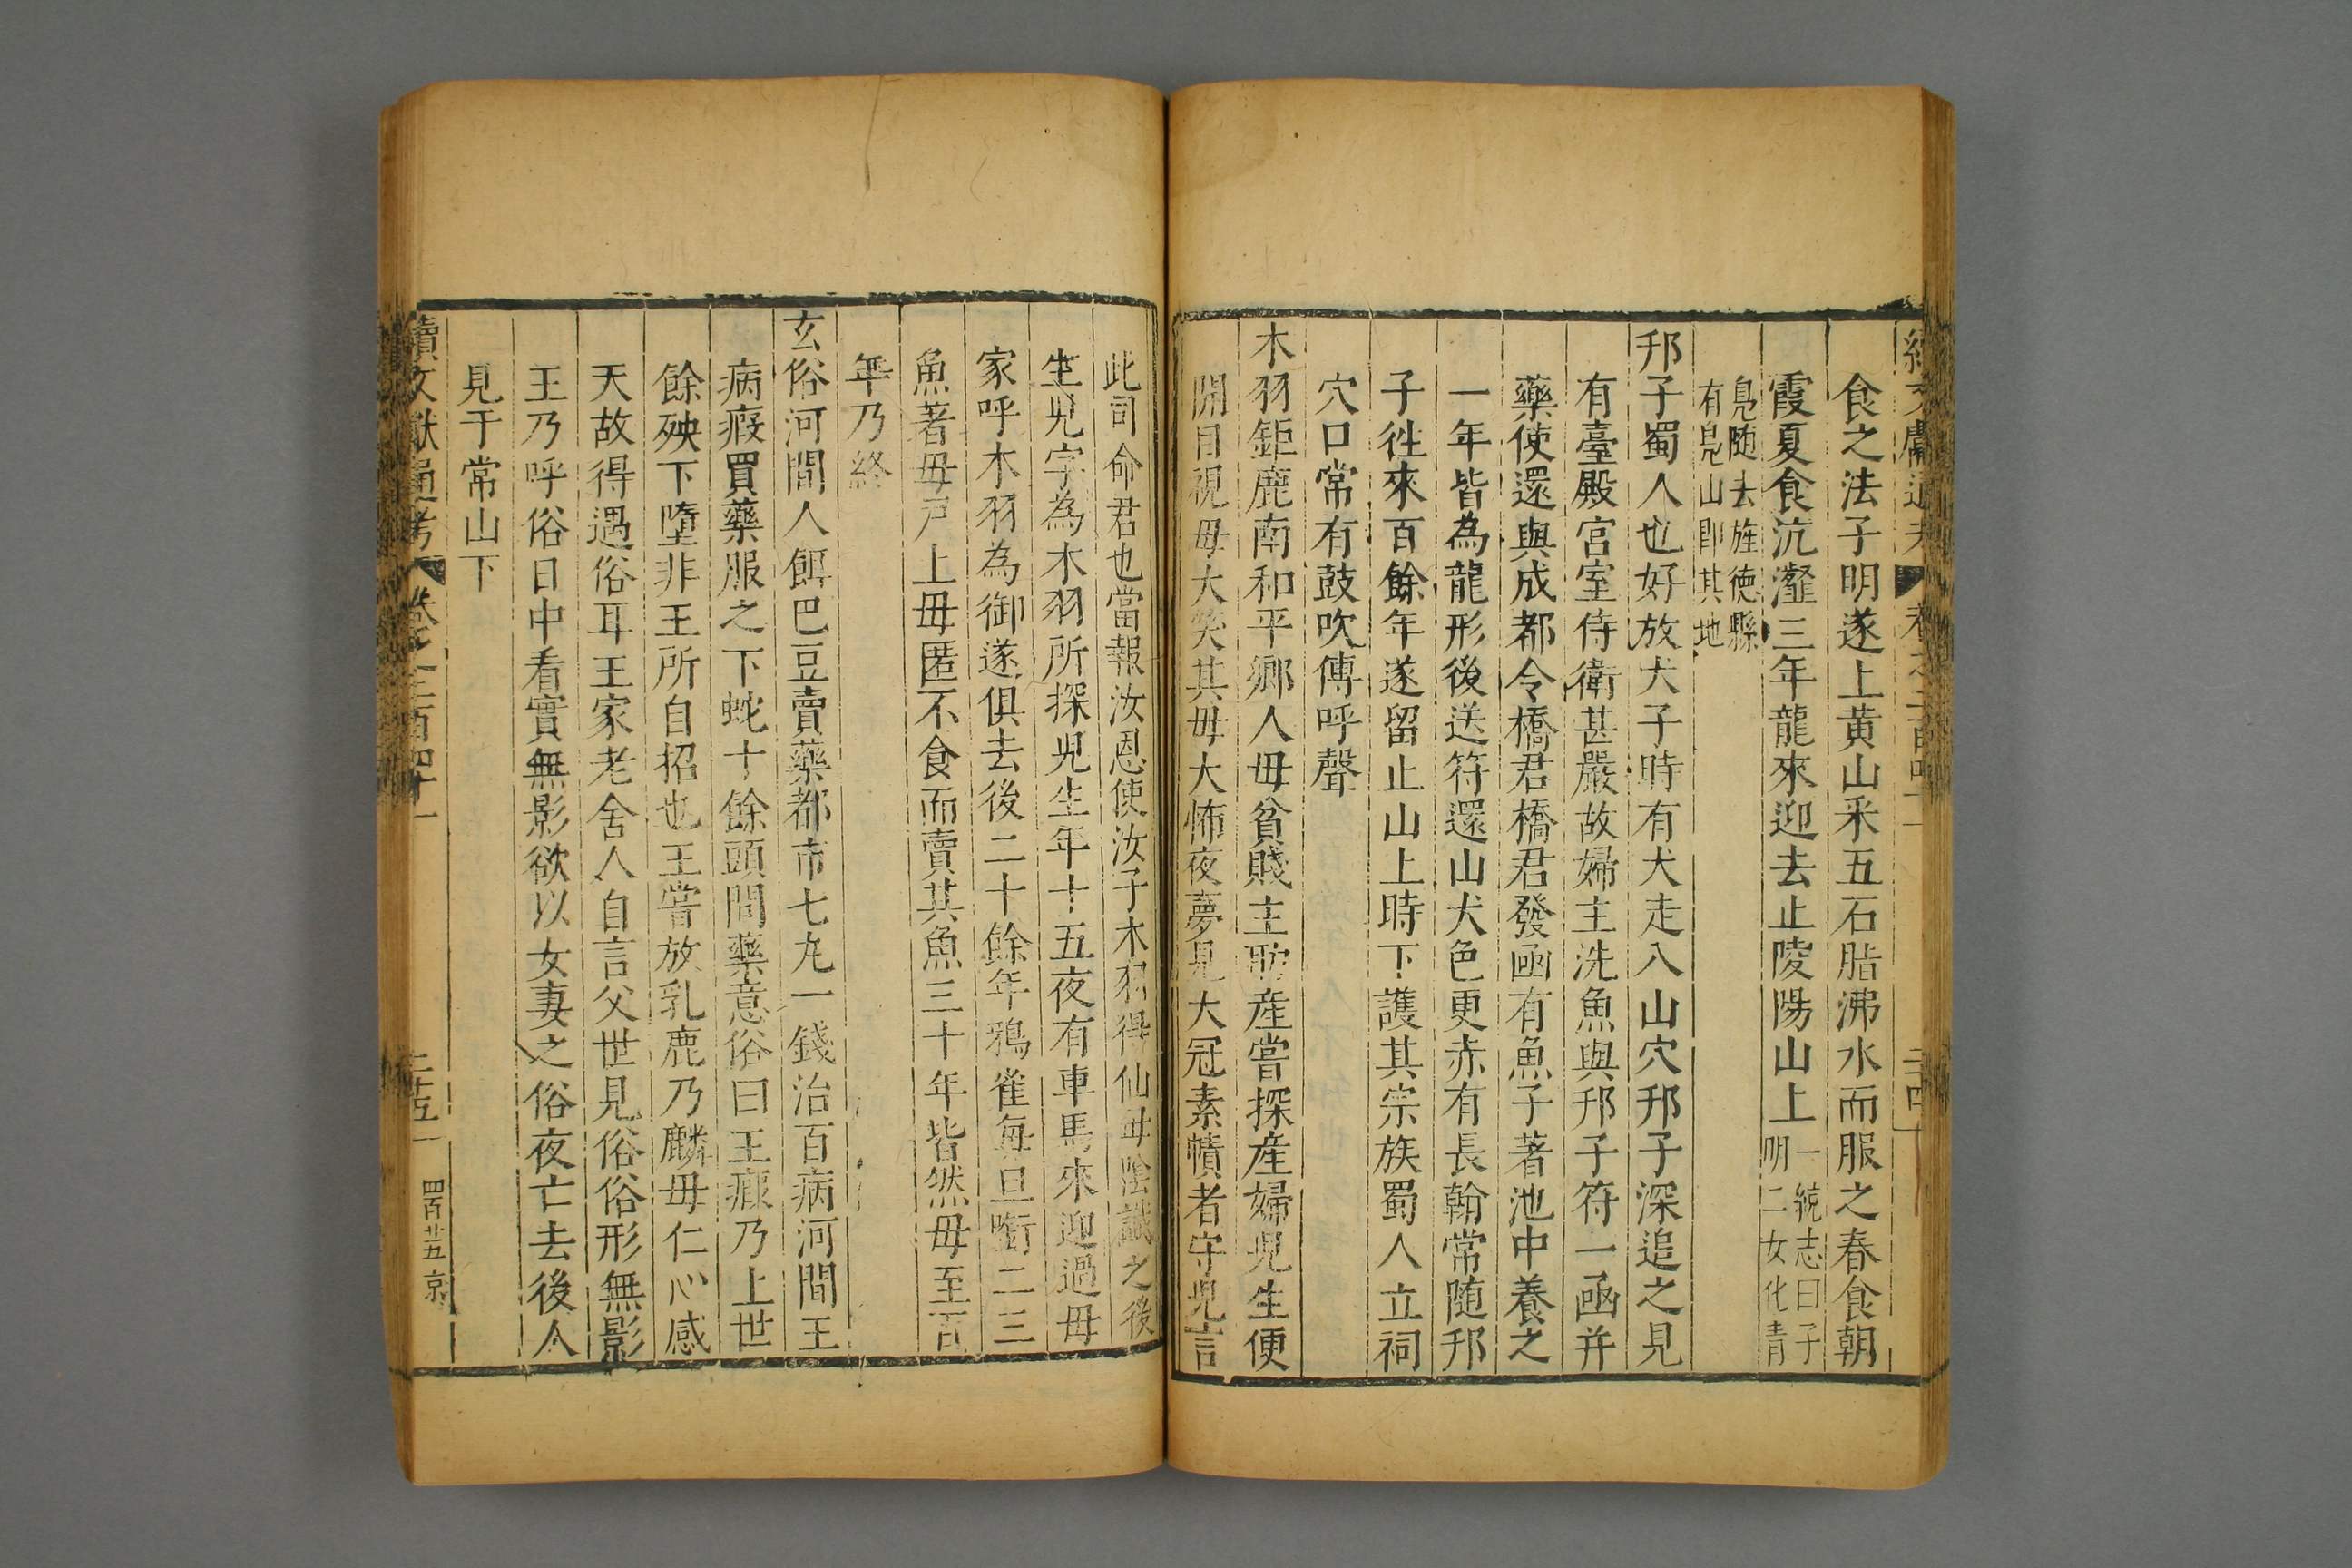 續文獻通考 卷之二百四十一 二十四
食之法子明遂上黄山采五石脂沸水而服之春食朝
霞夏食沆瀣三年龍來迎去止陵陽山上一統志曰子
明二女化青
鳬随去旌德縣
有鳬山即其地
邗子蜀人也好放犬子時有犬走入山穴邗子深追之見
有臺殿宮室侍衛甚嚴故婦主洗魚與邗子符一凾并
藥使還與成都令橋君橋君發凾有魚子著池中養之
一年皆為龍形後送符還山犬色更赤有長翰常随邗
子徃來百餘年遂留止山上時下護其宗族蜀人立祠
穴口常有鼓吹傳呼聲
木羽鉅鹿南和平鄉人毋貧賤主助產嘗探產婦兒生便
開目視毋大笑其毋大怖夜夢見大冠素幘者守兒言
此司命君也當報汝恩使汝子木羽得仙毋陰識之後
生兒字為木羽所探兒生年十五夜有車馬來迎過毋
家呼木羽為御遂俱去後二十餘年鸛雀每旦銜二三
魚著毋户上毋匿不食而賣其魚三十年皆然毋至百
年乃終
玄俗河間人餌巴豆賣藥都市七丸一錢治百病河間王
病瘕買藥服之下蛇十餘頭問藥意俗曰王瘕乃上世
餘殃下墮非王所自招也王嘗放乳鹿乃麟毋仁心感
天故得遇俗耳王家老舍人自言父世見俗俗形無影
王乃呼俗日中看實無影欲以女妻之俗夜亡去後人
見于常山下
續文獻通考 卷之二百四十一 二十五 四百廿五 京